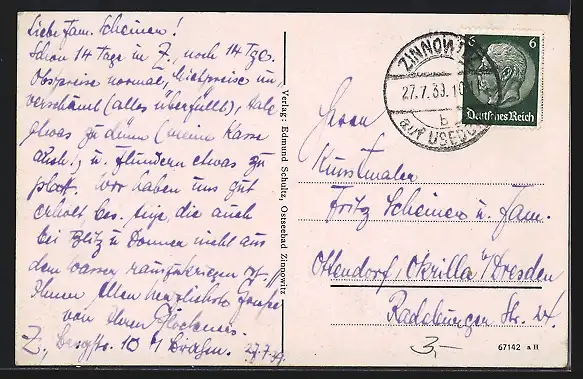 Liebe Fam. Scheinen!
Schon 14 Tage in Z., noch 14 Tge.
Obstpreise normal, Mietpreise un-
verschämt (alles überfüllt), Aale
etwas zu dünn (meine Kasse
auch), u. Flundern etwas zu
platt. Wir haben uns gut
erholt bes. die auch
bei Blitz u. Donner nicht aus
dem Wasser rauszukriegen ist.
Ihnen Allen herzlichste Grüsse
von Ihren Glöckners.
Z., Bergstr. 10 b/ 27.7.39.
Verlag: Edmund Schultz, Ostseebad Zinnowitz
ZINNOWITZ
27.7.39.
b
auf USEDOM
6 6
Deutsches Reich
Herrn
Kunstmaler
Fritz Scheinen u. Fam.
Ottendorf, Okrilla b/Dresden
Radeburger Str. 24.
3,-
67142 a H